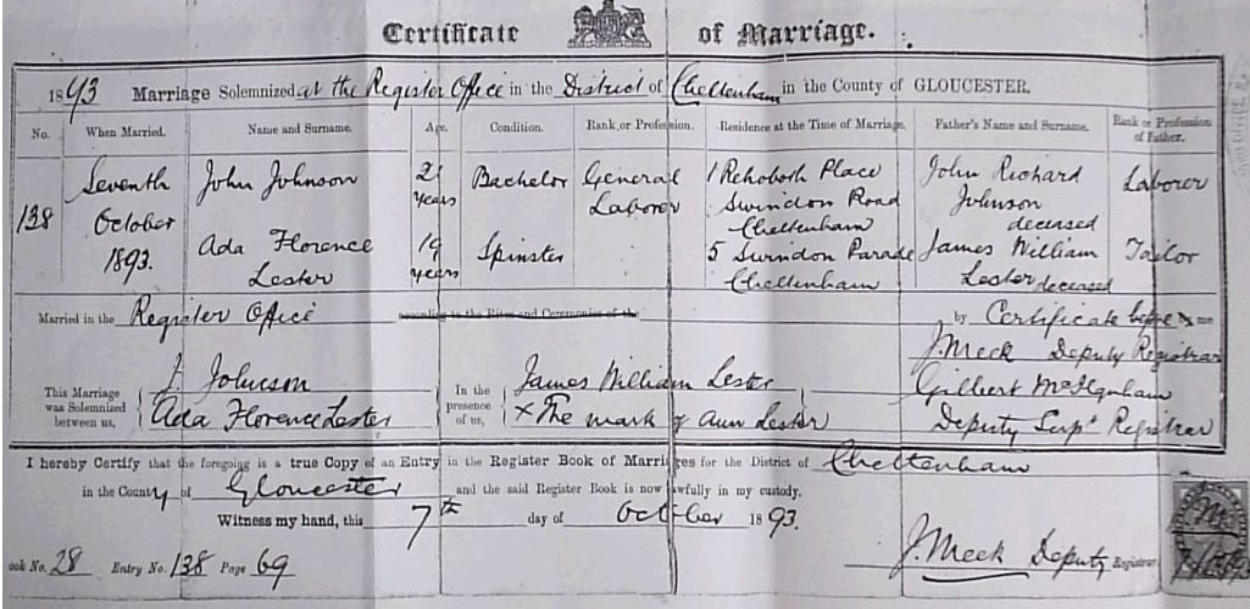 Certificate of Marriage.
1893 Marriage Solemnized at the Register Office in the District of Cheltenham in the County of GLOUCESTER.
No. When Married. Name and Surname. Age. Condition. Rank or Profession. Residence at the Time of Marriage. Father's Name and Surname. Rank or Profession of Father.
138 Seventh October 1893. John Johnson 21 years Bachelor General Laborer 1 Rehoboth Place Swindon Road Cheltenham John Richard Johnson deceased Laborer
Ada Florence Lester 19 years Spinster 5 Swindon Parade Cheltenham James William Lester deceased Tailor
Married in the Register Office according to the Rites and Ceremonies of the by Certificate before me
J. Meck Deputy Registrar
This Marriage was Solemnized between us, J. Johnson In the presence of us, James William Lester Gilbert
Ada Florence Lester X The mark of Ann Lester Deputy Supt Registrar
I hereby Certify that the foregoing is a true Copy of an Entry in the Register Book of Marriages for the District of Cheltenham
in the County of Gloucester and the said Register Book is now lawfully in my custody.
Witness my hand, this 7th day of October 1893.
J. Meck Deputy Registrar
ook No. 28 Entry No. 138 Page 69